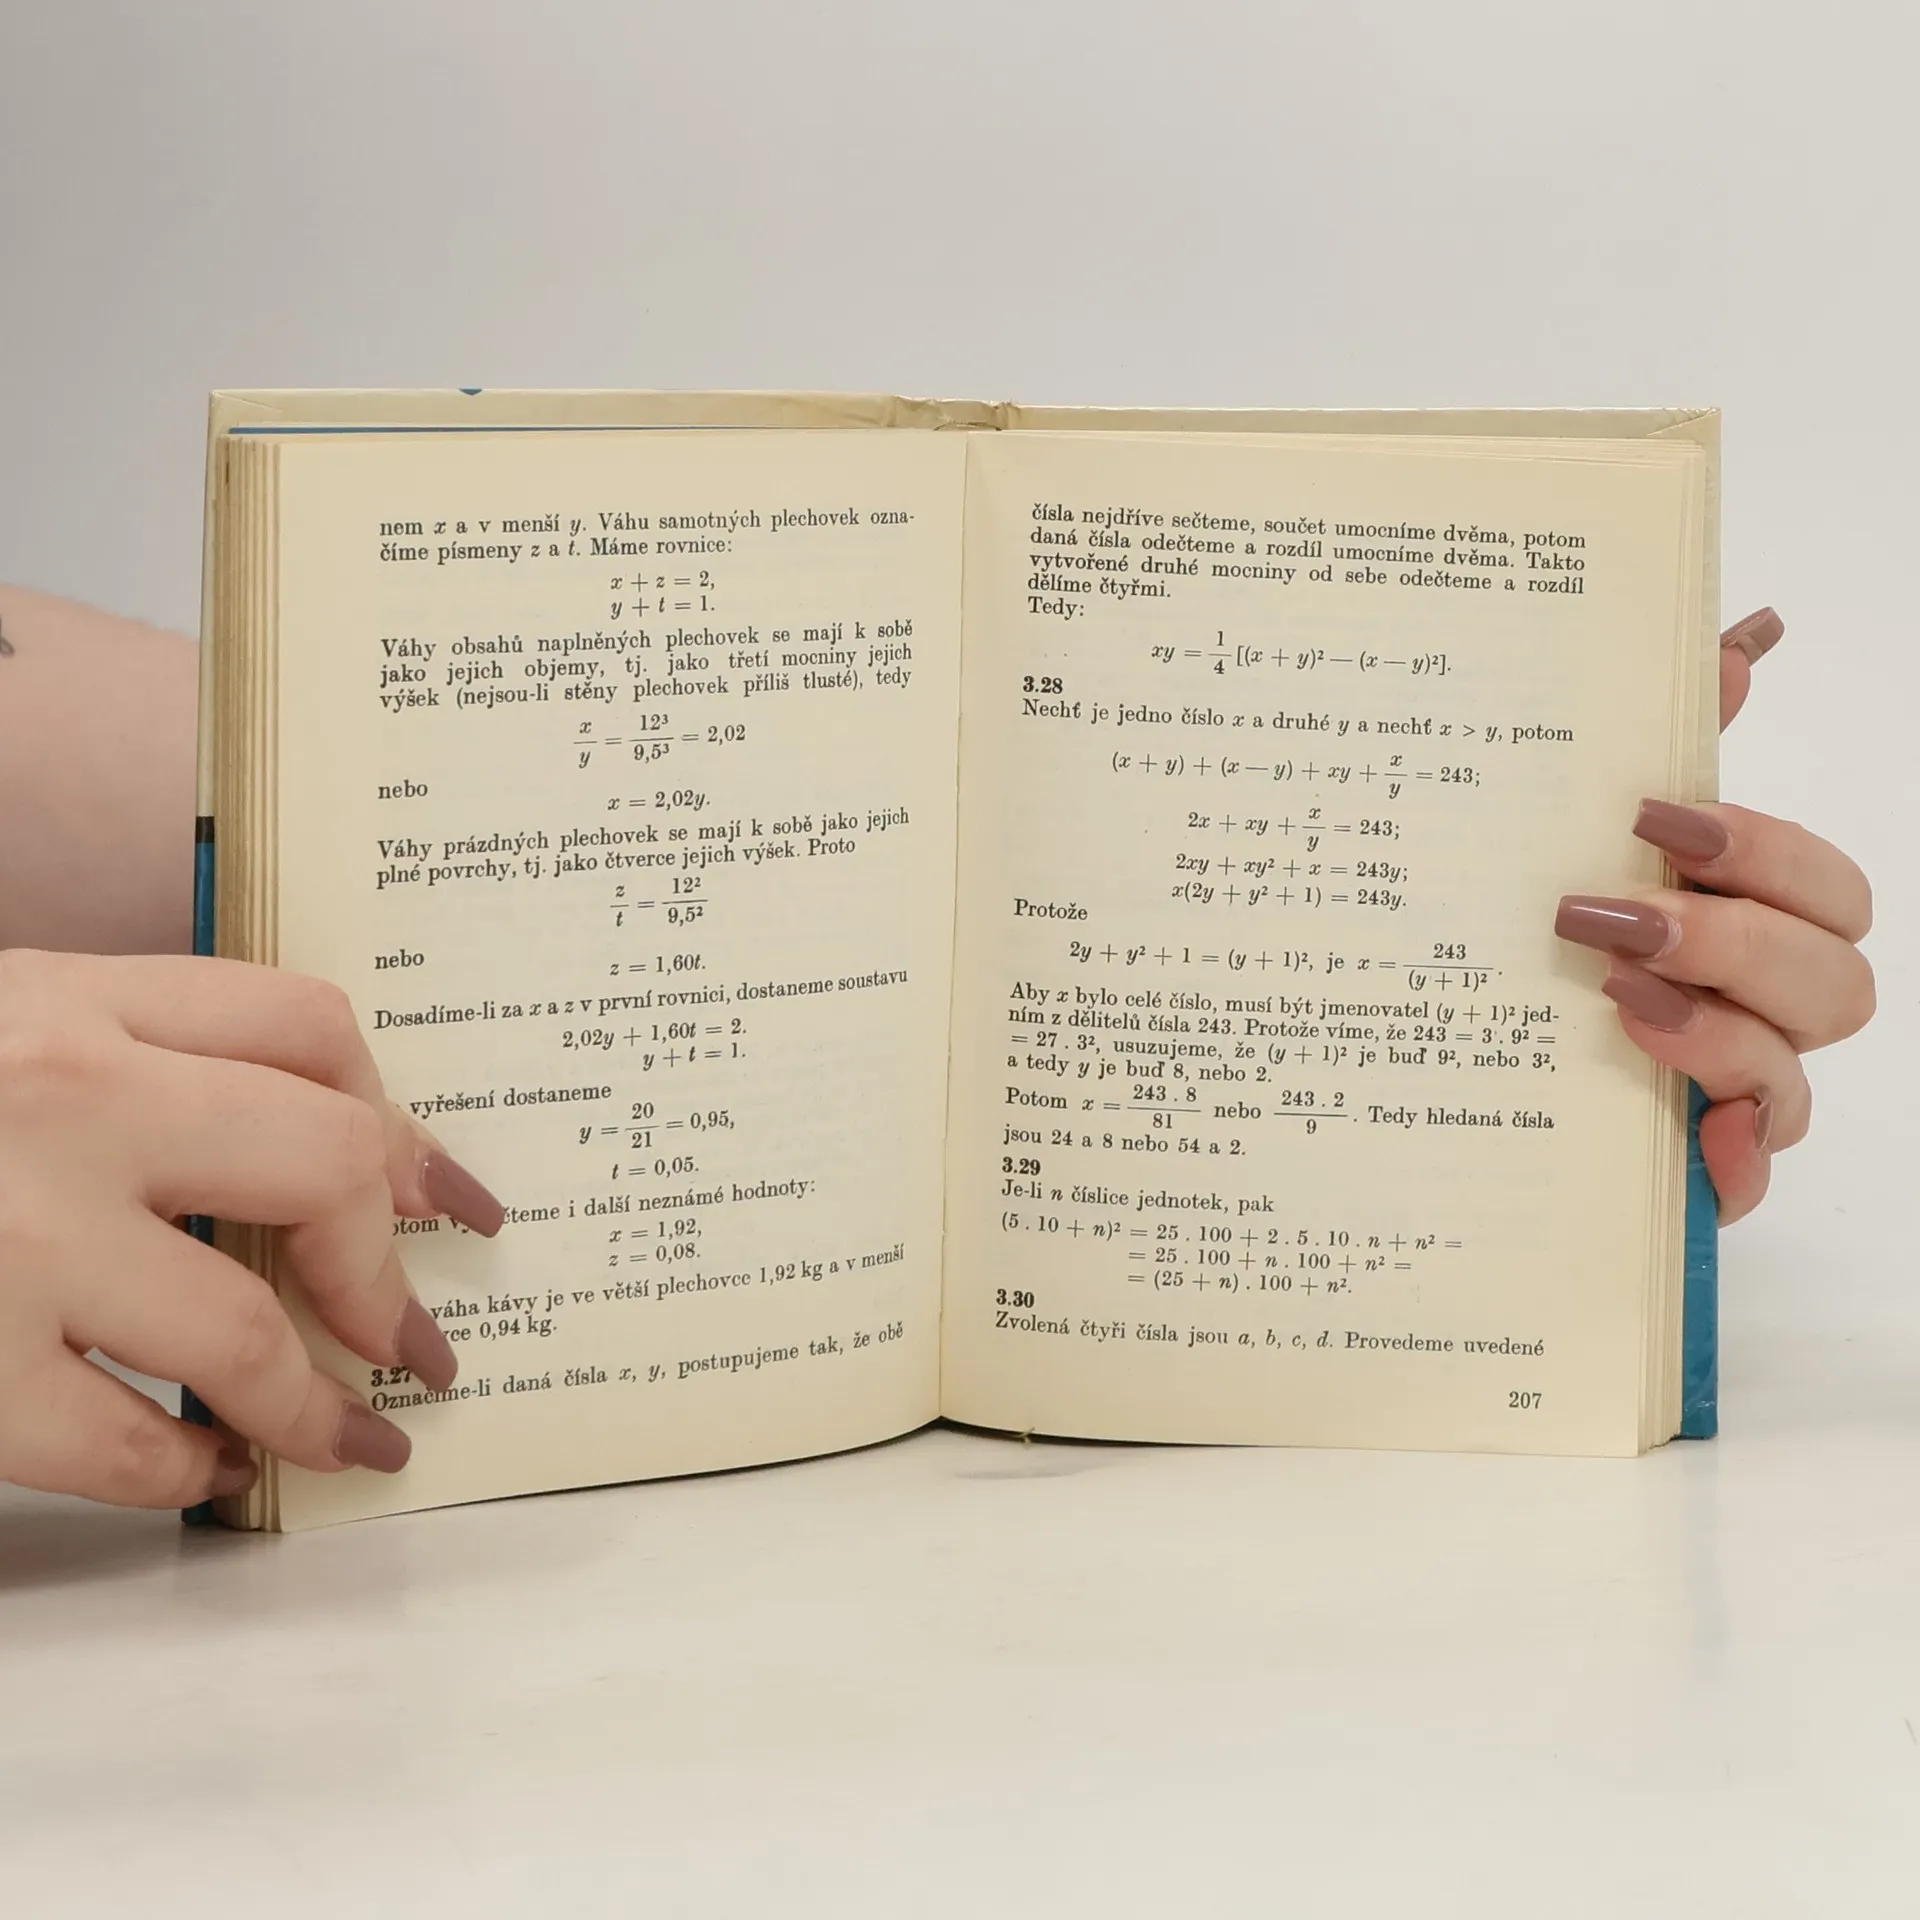 nem x a v menší y. Váhu samotných plechovek ozna-
číme písmeny z a t. Máme rovnice:
x + z = 2,
y + t = 1.
Váhy obsahů naplněných plechovek se mají k sobě
jako jejich objemy, tj. jako třetí mocniny jejich
výšek (nejsou-li stěny plechovek příliš tlusté), tedy
x/y = 12³/9,5³ = 2,02
nebo
x = 2,02y.
Váhy prázdných plechovek se mají k sobě jako jejich
plné povrchy, tj. jako čtverce jejich výšek. Proto
z/t = 12²/9,5²
nebo
z = 1,60t.
Dosadíme-li za x a z v první rovnici, dostaneme soustavu
2,02y + 1,60t = 2.
y + t = 1.
vyřešení dostaneme
y = 20/21 = 0,95,
t = 0,05.
i další neznámé hodnoty:
x = 1,92,
z = 0,08.
váha kávy je ve větší plechovce 1,92 kg a v menší
0,94 kg.
3.27
Označíme-li daná čísla x, y, postupujeme tak, že obě
čísla nejdříve sečteme, součet umocníme dvěma, potom
daná čísla odečteme a rozdíl umocníme dvěma. Takto
vytvořené druhé mocniny od sebe odečteme a rozdíl
dělíme čtyřmi.
Tedy:
xy = 1/4 [(x + y)² — (x — y)²].
3.28
Nechť je jedno číslo x a druhé y a nechť x > y, potom
(x + y) + (x — y) + xy + x/y = 243;
2x + xy + x/y = 243;
2xy + xy² + x = 243y;
x(2y + y² + 1) = 243y.
Protože
2y + y² + 1 = (y + 1)², je x = 243/(y + 1)².
Aby x bylo celé číslo, musí být jmenovatel (y + 1)² jed-
ním z dělitelů čísla 243. Protože víme, že 243 = 3 . 9² =
= 27 . 3², usuzujeme, že (y + 1)² je buď 9², nebo 3²,
a tedy y je buď 8, nebo 2.
Potom x = 243 . 8/81 nebo 243 . 2/9. Tedy hledaná čísla
jsou 24 a 8 nebo 54 a 2.
3.29
Je-li n číslice jednotek, pak
(5 . 10 + n)² = 25 . 100 + 2 . 5 . 10 . n + n² =
= 25 . 100 + n . 100 + n² =
= (25 + n) . 100 + n².
3.30
Zvolená čtyři čísla jsou a, b, c, d. Provedeme uvedené
207